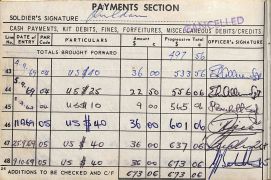 PAYMENTS SECTION
SOLDIER'S SIGNATURE
CANCELLED
CASH PAYMENTS, KIT DEBITS, FINES, FORFEITURES, MISCELLANEOUS DEBITS/CREDITS
Line No DATE of ENTRY PART PARTICULARS Amount $ c Progressive Total $ c OFFICER'S SIGNATURE
TOTALS BROUGHT FORWARD 497 56
43 69 04 US $ 40 36 00 533 56
44 9 69 04 US $ 25 22 50 556 06
45 69 05 US $ 10 9 00 565 06
46 69 05 US $ 40 36 00 601 06
47 25 9 69 05 US $ 40 36 00 637 06
48 9 10 69 05 US $ 40 36 00 673 06
ADDITIONS TO BE CHECKED AND C/F 673 06 673 06